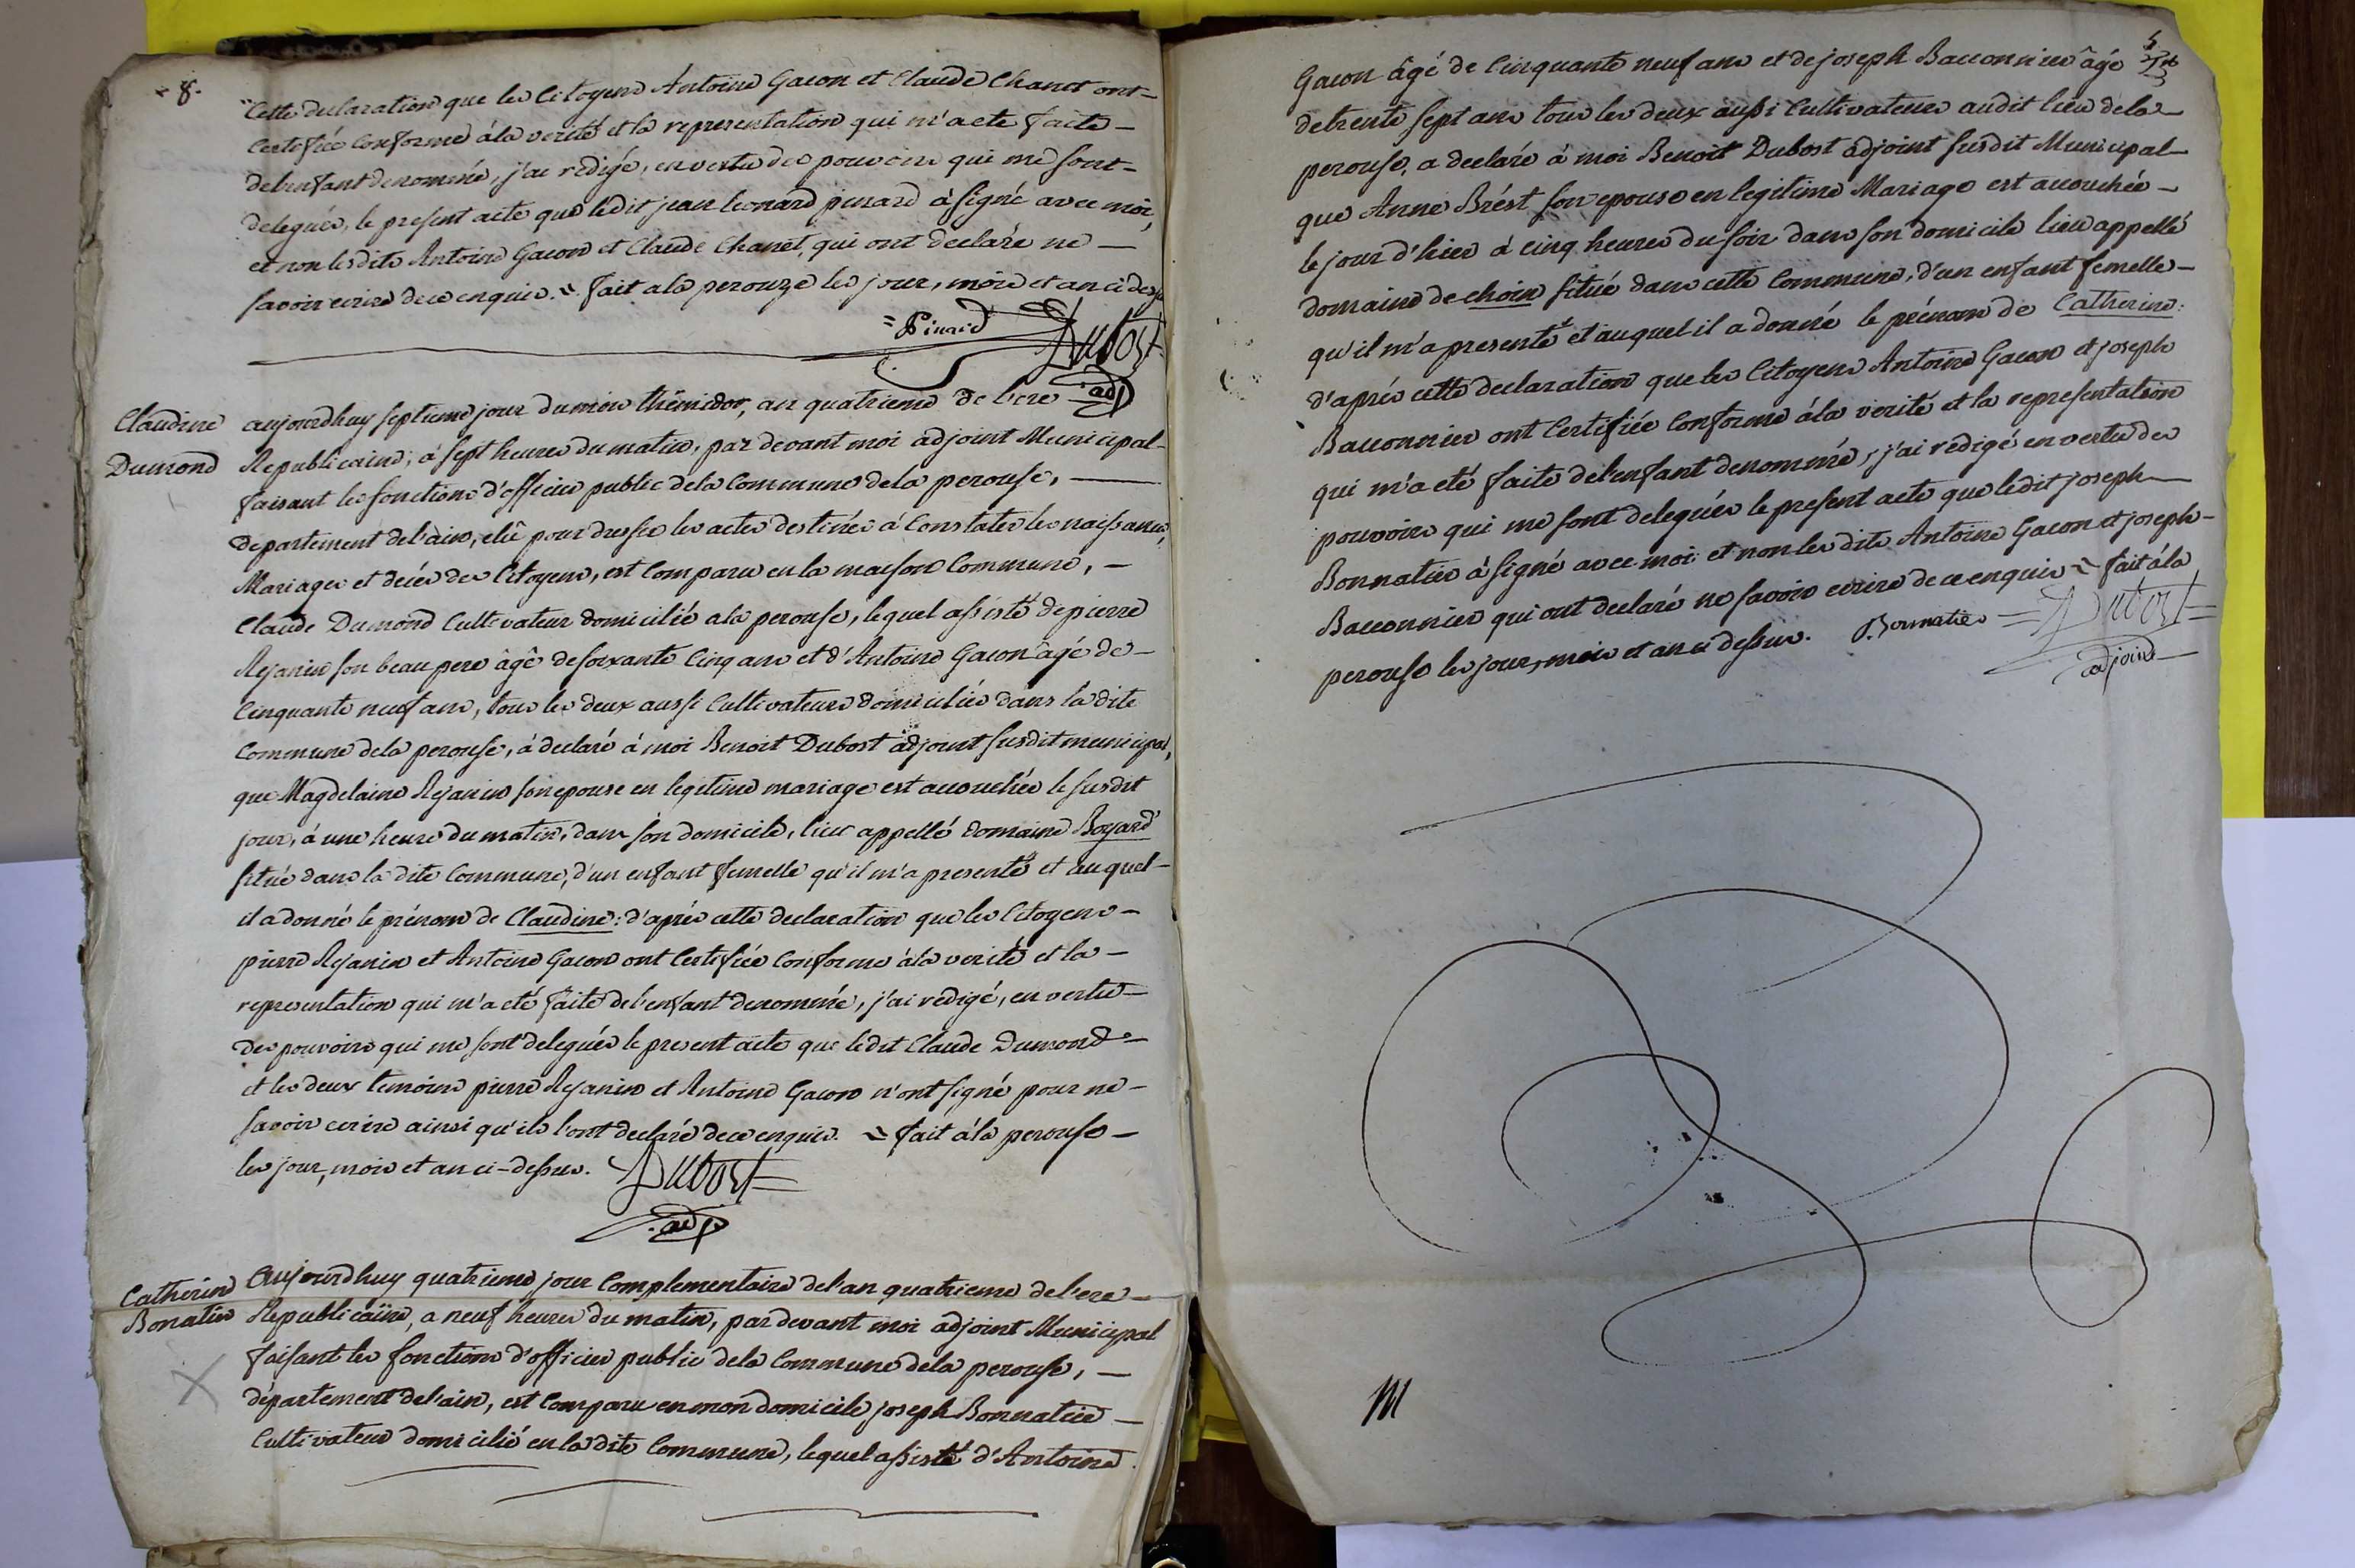 8.
Cette declaration que les Citoyens Antoine Gacon et Claude Chanet ont
Certifiée Conforme à la verité et la representation qui m'a eté faite
de l'enfant denommé, j'ai redigé, en vertu des pouvoirs qui me sont
delegués, le present acte que ledit jean leonard pinard à signé avec moi,
et non lesdits Antoine Gacon et Claude Chanet, qui ont declaré ne
savoir ecrire de ce enquis. = fait a la perouze les jour, mois et an ci dessus
= Pinard Dubost
adj
Claudine
Dumond
aujourdhuy septieme jour du mois thémidor, an quatrieme de l'ere
Republicaine, à sept heures du matin, par devant moi adjoint Municipal
faisant les fonctions d'officier public de la Commune de la perouse,
departement de l'ain, elû pour dresser les actes destinés à Constater les naissances,
Mariages et décés des Citoyens, est Comparu en la maison Commune,
Claude Dumond Cultivateur domicilié a la perouse, lequel assisté de pierre
Rejanin son beau pere âgé de soixante Cinq ans et d'Antoine Gacon âgé de
Cinquante neuf ans, tous les deux aussi Cultivateurs domiciliés dans la dite
Commune de la perouse, à declaré à moi Benoit Dubost adjoint susdit municipal,
que Magdelaine Rejanin son epouse en legitime mariage est accouchée le susdit
jour, à une heure du matin, dans son domicile, lieu appellé domaine Boyard
situé dans la dite Commune, d'un enfant femelle qu'il m'a presenté et auquel
il a donné le prénom de Claudine: d'après cette declaration que les Citoyens
pierre Rejanin et Antoine Gacon ont Certifiée Conforme à la verité et la
representation qui m'a eté faite de l'enfant denommé, j'ai redigé, en vertu
des pouvoirs qui me sont delegués le present acte que ledit Claude Dumond
et les deux temoins pierre Rejanin et Antoine Gacon n'ont signé pour ne
savoir ecrire ainsi qu'ils l'ont declaré de ce enquis. = fait à la perouse
les jour, mois et an ci-dessus. Dubost
adj
Catherine
Bonatier
Aujourdhuy quatrieme jour Complementaire de l'an quatrieme de l'ere
Republicaine, a neuf heures du matin, par devant moi adjoint Municipal
faisant les fonctions d'officier public de la Commune de la perouse,
département de l'ain, est Comparu en mon domicile joseph Bonnatier
Cultivateur domicilié en la dite Commune, lequel assisté d'Antoine
Gacon âgé de Cinquante neuf ans et de joseph Bacconnier âgé
de trente sept ans tous les deux aussi Cultivateurs audit lieu de la
perouse, a declaré à moi Benoit Dubost adjoint susdit Municipal
que Anne Brést son epouse en legitime Mariage est accouchée
le jour d'hier à cinq heures du soir dans son domicile lieu appellé
domaine de choin situé dans cette Commune, d'un enfant femelle
qu'il m'a presenté et auquel il a donné le prénom de Catherine:
d'après cette declaration que les Citoyens Antoine Gacon et joseph
Bacconnier ont Certifiée Conforme à la verité et la representation
qui m'a eté faite de l'enfant denommé, j'ai redigé en vertu des
pouvoirs qui me sont delegués le present acte que ledit joseph
Bonnatier à signé avec moi et non les dits Antoine Gacon et joseph
Bacconnier qui ont declaré ne savoir ecrire de ce enquis = fait à la
perouse les jour, mois et an ci dessus. Bonnatier = Dubost
adjoint